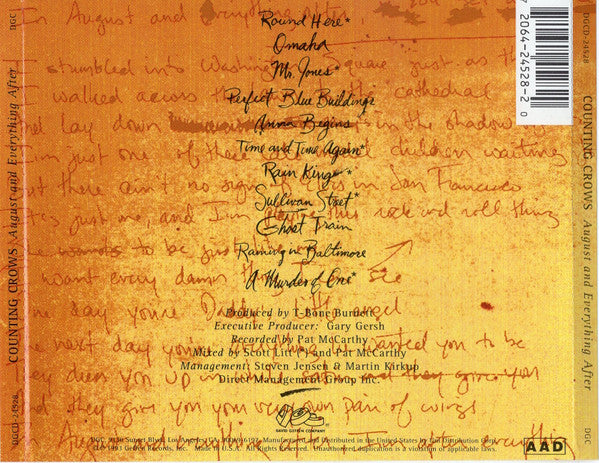 DGC
COUNTING CROWS
August and Everything After
DGCD-24528
In August and everything after
Round Here*
Omaha
I stumbled into Washington Square just as the
Mr. Jones*
I walked across the cathedral
Perfect Blue Buildings
lay down in the shadows
Anna Begins
I'm just one of these children
Time and Time Again*
there ain't no in San Francisco
Rain King*
Sullivan Street*
just me, and I'm this rock and roll thing
Ghost Train
to be just
Raining in Baltimore
want every damn thing I see
A Murder of One*
One day you're Daddy's
Produced by T-Bone Burnett
Executive Producer: Gary Gersh
Recorded by Pat McCarthy
next day you're wanted you to be
Mixed by Scott Litt (*) and Pat McCarthy
Management: Steven Jensen & Martin Kirkup
they dress you up in and they give you
Direct Management Group Inc.
And they give you your very own pair of wings
DAVID GEFFEN COMPANY
In August and everything
DGC, 9130 Sunset Blvd., Los Angeles, CA Manufactured and Distributed in the United States by Uni Distribution Corp.
1993 Geffen Records, Inc. Made in U.S.A. All Rights Reserved. Unauthorized duplication is a violation of applicable laws.
7 20642-4528-2 0
DGCD-24528
COUNTING CROWS
August and Everything After
DGC
AAD